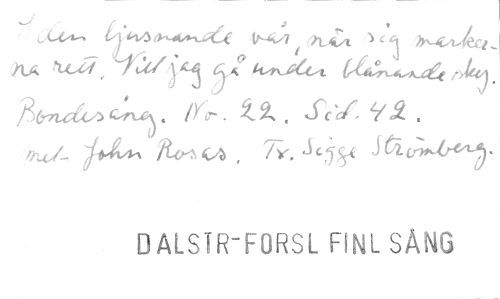 I den ljusnande vår, när sig marker-
na rett. Vill jag gå under blånande sky.
Bondesång. No. 22. Sid. 42.
mel- John Rosas. Tx. Sigge Strömberg.
DALSTR-FORSL FINL SÅNG